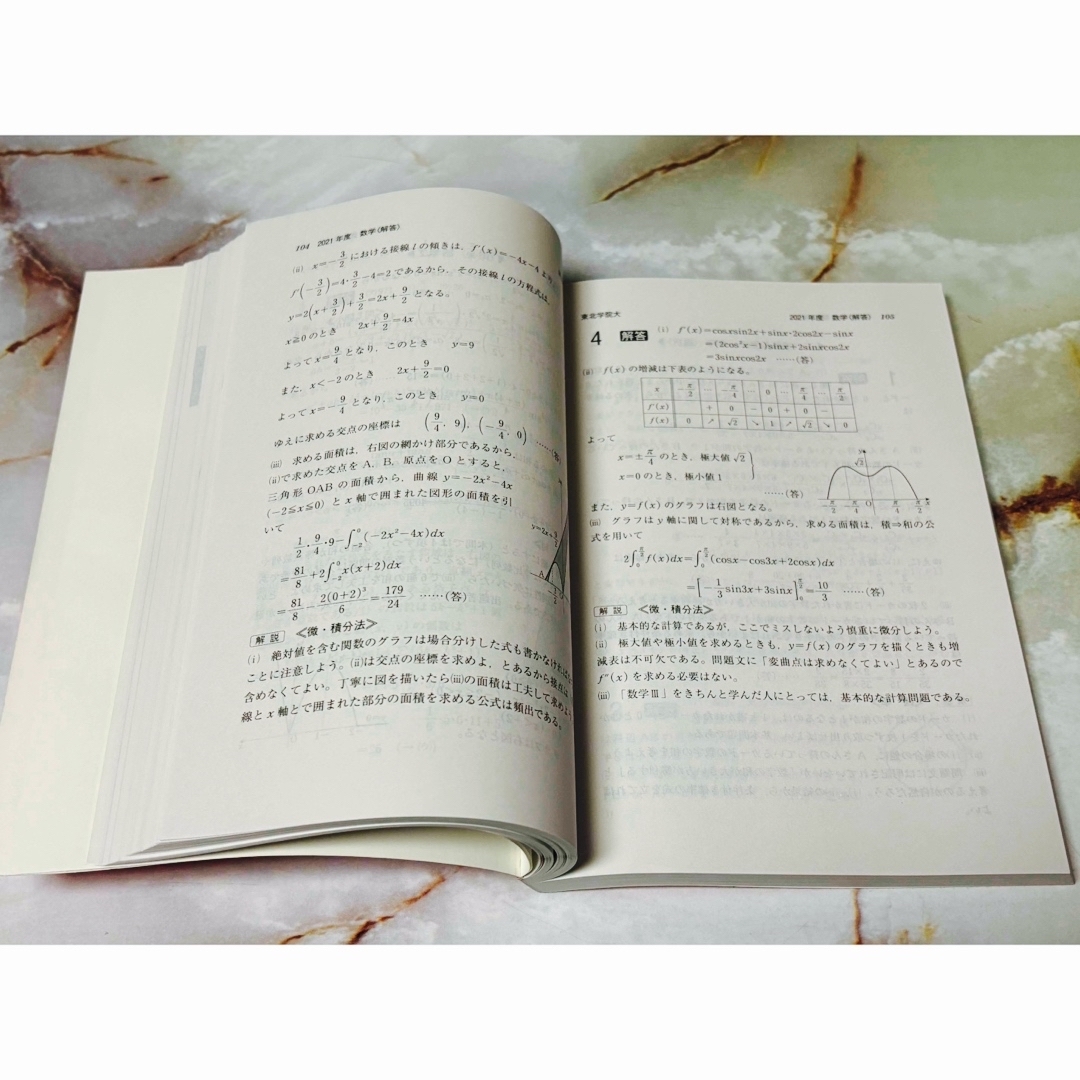 104 2021年度 数学〈解答〉
(ii) x=-3/2 における接線 l の傾きは、f'(x)=-4x-4 より
f'(-3/2)=4・3/2-4=2 であるから、その接線 l の方程式は、
y=2(x+3/2)+3/2=2x+9/2 となる。
x≧0のとき 2x+9/2=4x
よって x=9/4 となり、このとき y=9
また、x<-2のとき 2x+9/2=0
よって x=-9/4 となり、このとき y=0
ゆえに求める交点の座標は (9/4, 9), (-9/4, 0) ……(答)
(iii) 求める面積は、右図の網かけ部分であるから、
(ii)で求めた交点を A, B, 原点を O とすると、
三角形 OAB の面積から、曲線 y=-2x²-4x
(-2≦x≦0) と x 軸で囲まれた図形の面積を引
いて
1/2・9/4・9-∫_{-2}^{0}(-2x²-4x)dx
=81/8+2∫_{-2}^{0}x(x+2)dx
=81/8-2(0+2)³/6=179/24 ……(答)
解説 ≪微・積分法≫
(i) 絶対値を含む関数のグラフは場合分けした式も書かなければ
ことに注意しよう。(ii)は交点の座標を求めよ、とあるから接点は
含めなくてよい。丁寧に図を描いたら(iii)の面積は工夫して求めよ
線と x 軸とで囲まれた部分の面積を求める公式は頻出である。
東北学院大 2021年度 数学〈解答〉 105
4 解答 (i) f'(x)=cosxsin2x+sinx・2cos2x-sinx
=(2cos²x-1)sinx+2sinxcos2x
=3sinxcos2x ……(答)
(ii) f(x) の増減は下表のようになる。
x -π/2 … -π/4 … 0 … π/4 … π/2
f'(x) + 0 - 0 + 0 -
f(x) 0 ↗ √2 ↘ 1 ↗ √2 ↘ 0
よって
x=±π/4 のとき、極大値 √2
x=0 のとき、極小値 1
……(答)
また、y=f(x) のグラフは右図となる。
(iii) グラフは y 軸に関して対称であるから、求める面積は、積⇒和の公
式を用いて
2∫_{0}^{π/2}f(x)dx=∫_{0}^{π/2}(cosx-cos3x+2cosx)dx
=[-1/3 sin3x+3sinx]_{0}^{π/2}=10/3 ……(答)
解説 ≪微・積分法≫
(i) 基本的な計算であるが、ここでミスしないよう慎重に微分しよう。
(ii) 極大値や極小値を求めるときも、y=f(x) のグラフを描くときも増
減表は不可欠である。問題文に「変曲点は求めなくてよい」とあるので
f''(x) を求める必要はない。
(iii) 「数学Ⅲ」をきちんと学んだ人にとっては、基本的な計算問題である。